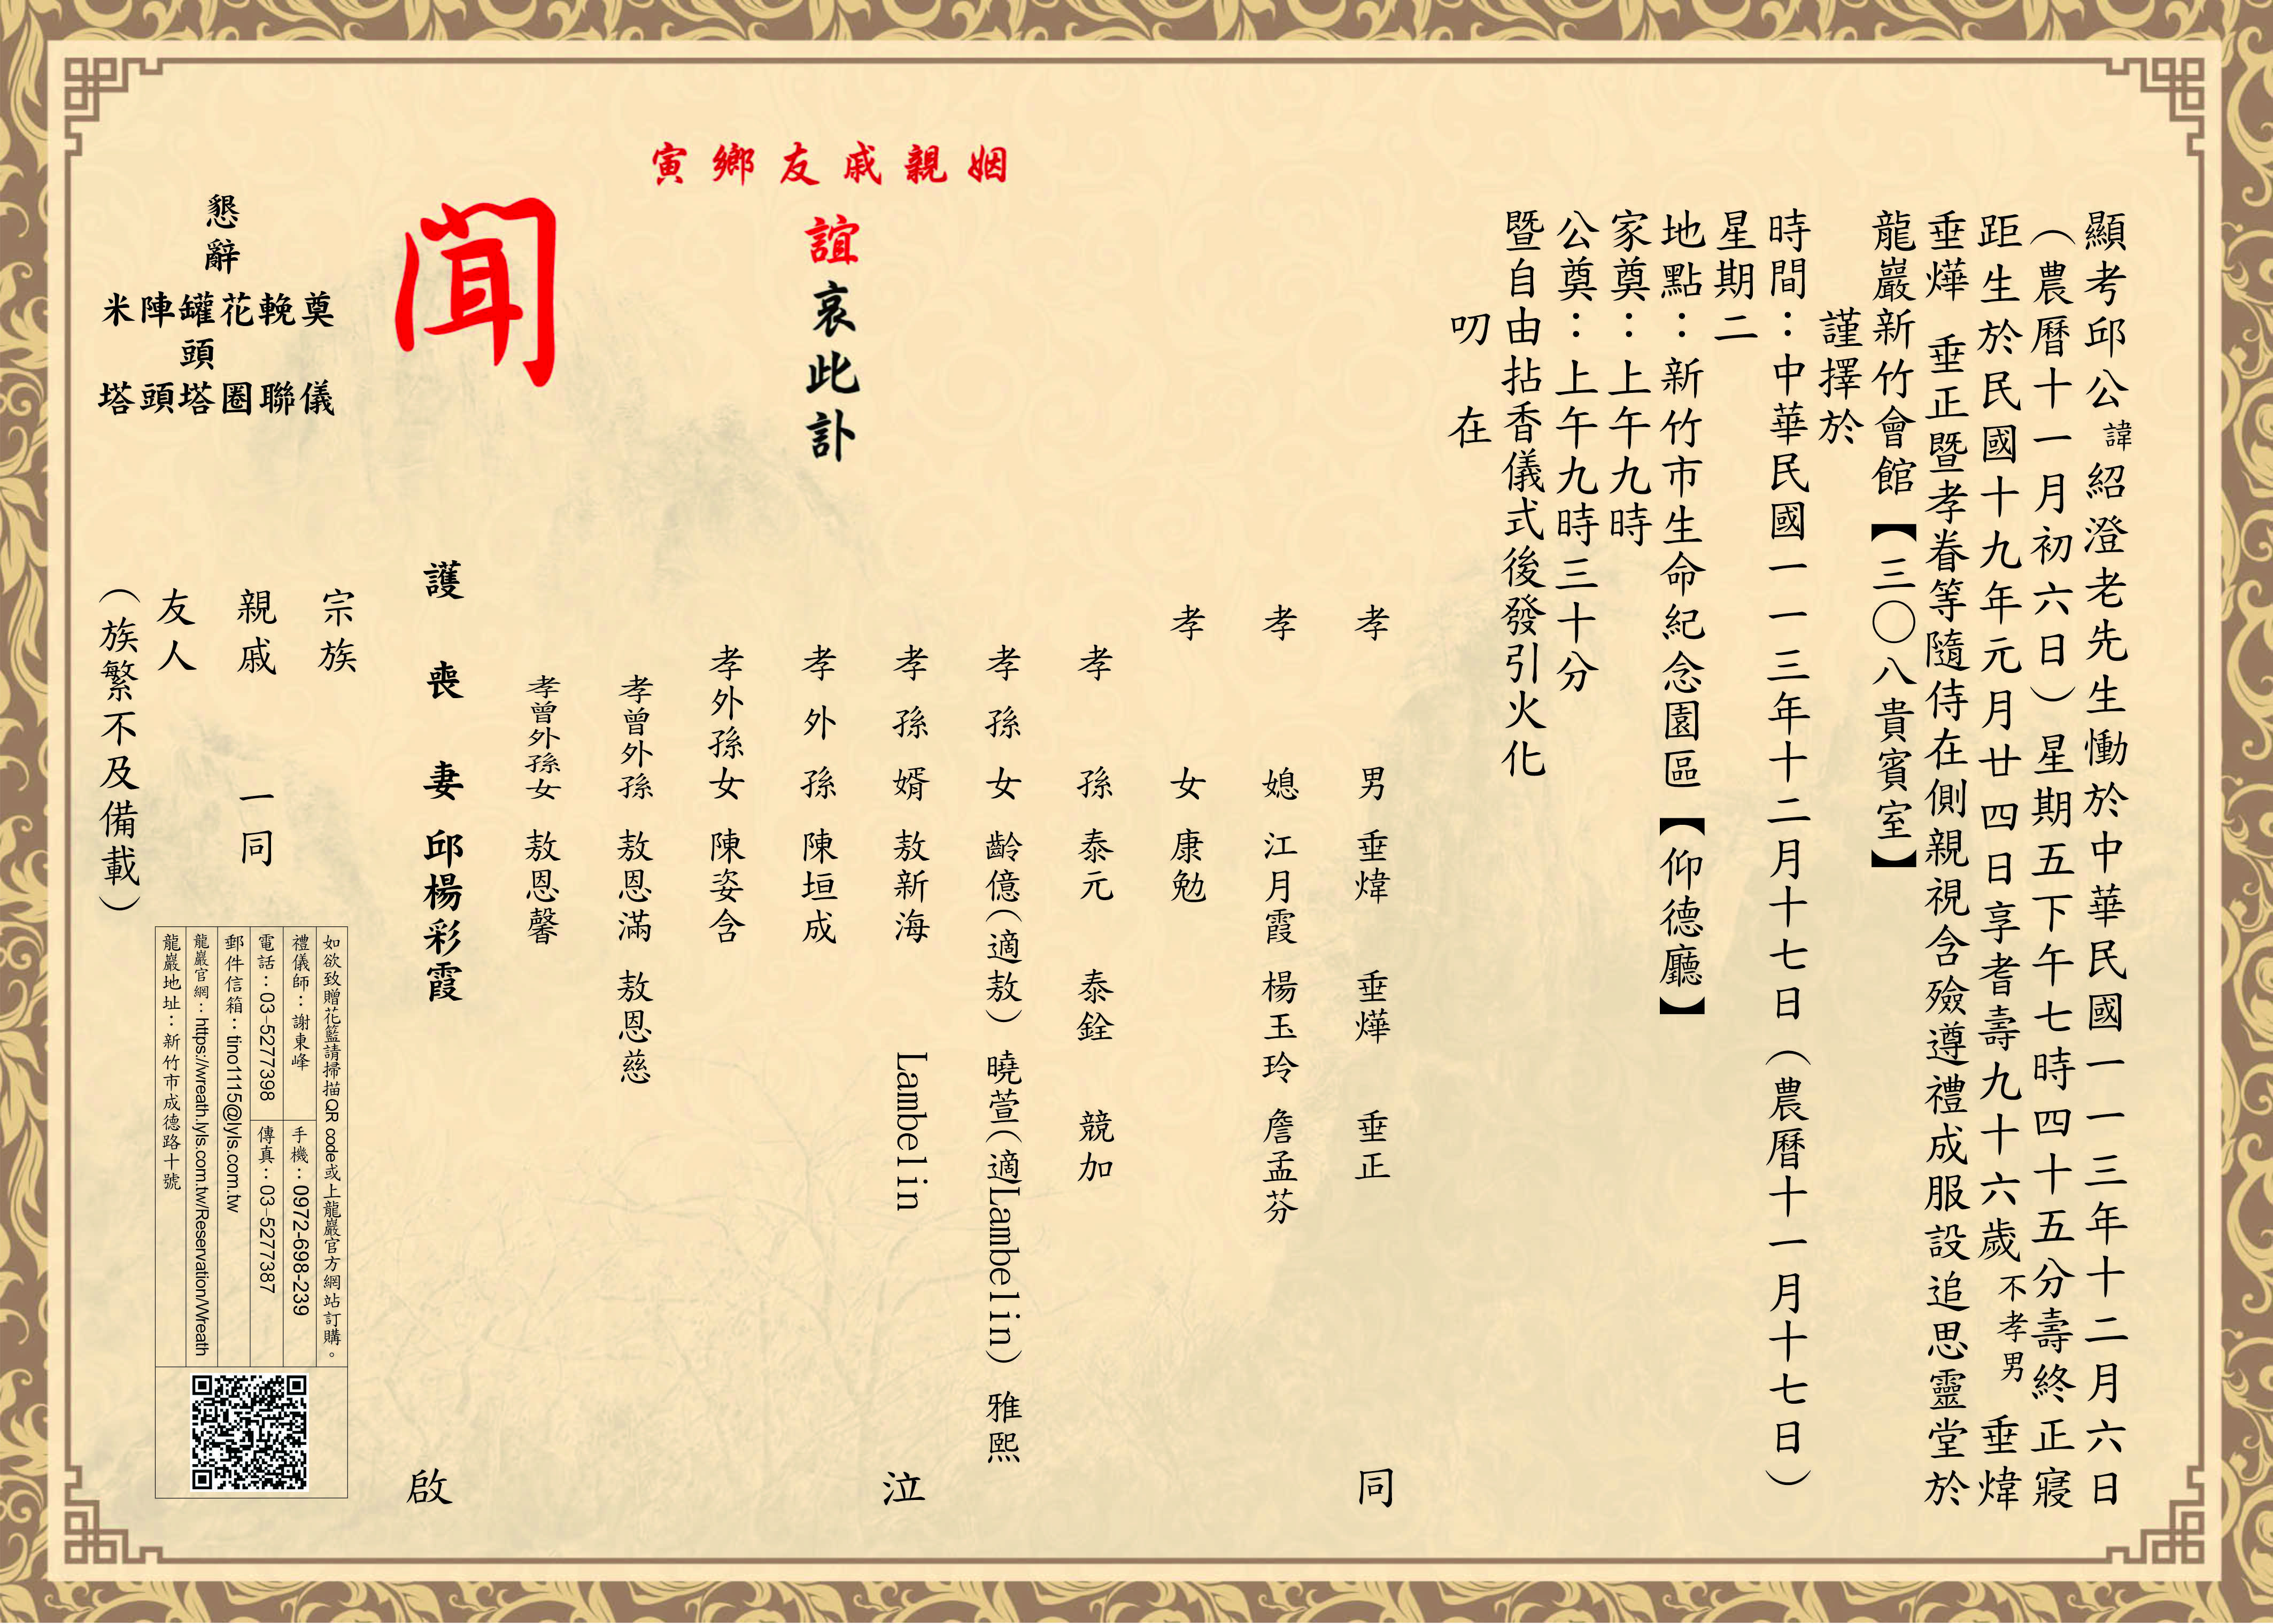 顯考邱公諱紹澄老先生慟於中華民國一一三年十二月六日
（農曆十一月初六日）星期五下午七時四十五分壽終正寢
距生於民國十九年元月廿四日享耆壽九十六歲不孝男 垂煒
垂燁 垂正暨孝眷等隨侍在側親視含殮遵禮成服設追思靈堂於
龍巖新竹會館【三○八貴賓室】
謹擇於
時間：中華民國一一三年十二月十七日（農曆十一月十七日）
星期二
地點：新竹市生命紀念園區【仰德廳】
家奠：上午九時
公奠：上午九時三十分
暨自由拈香儀式後發引火化
叨 在
姻親戚友鄉寅
誼哀此訃
聞
孝男 垂煒 垂燁 垂正 同
孝媳 江月霞 楊玉玲 詹孟芬
孝女 康勉
孝孫 泰元 泰銓 競加
孝孫女 齡億（適敖） 曉萱（適Lambelin） 雅熙
孝孫婿 敖新海 Lambelin 泣
孝外孫 陳垣成
孝外孫女 陳姿含
孝曾外孫 敖恩滿 敖恩慈
孝曾外孫女 敖恩馨
護喪妻 邱楊彩霞 啟
宗族
親戚 一同
友人
（族繁不及備載）
懇辭
奠儀
輓聯
花圈
罐頭塔
陣頭
米塔
如欲致贈花籃請掃描QR code或上龍巖官方網站訂購。
禮儀師：謝東峰 手機：0972-698-239
電話：03-5277398 傳真：03-5277387
郵件信箱：tino1115@lyls.com.tw
龍巖官網：https://wreath.lyls.com.tw/Reservation/Wreath
龍巖地址：新竹市成德路十號